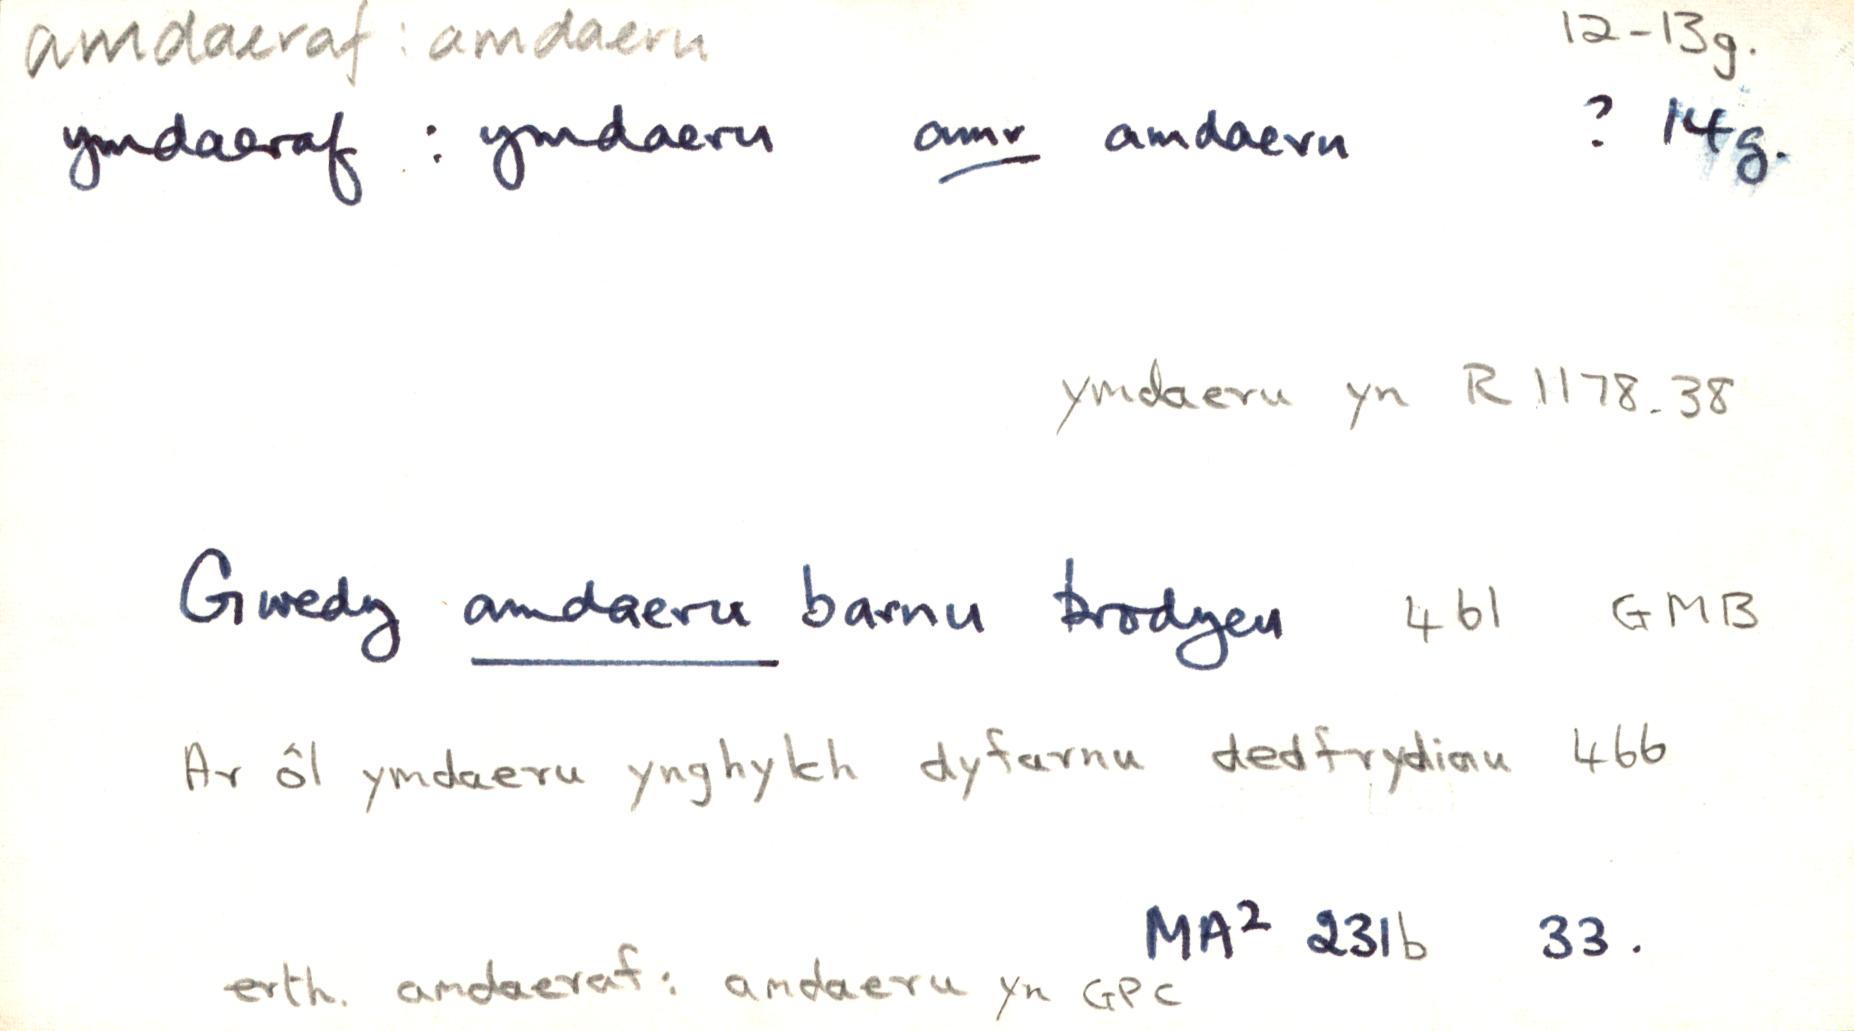 amdaeraf : amdaeru 12-13g.
ymdaeraf : ymdaeru amr amdaeru ? 14g.
ymdaeru yn R 1178.38
Gwedy amdaeru barnu brodyeu 461 GMB
Ar ôl ymdaeru ynghylch dyfarnu dedfrydiau 466
MA² 231b 33.
erth. amdaeraf: amdaeru yn GPC